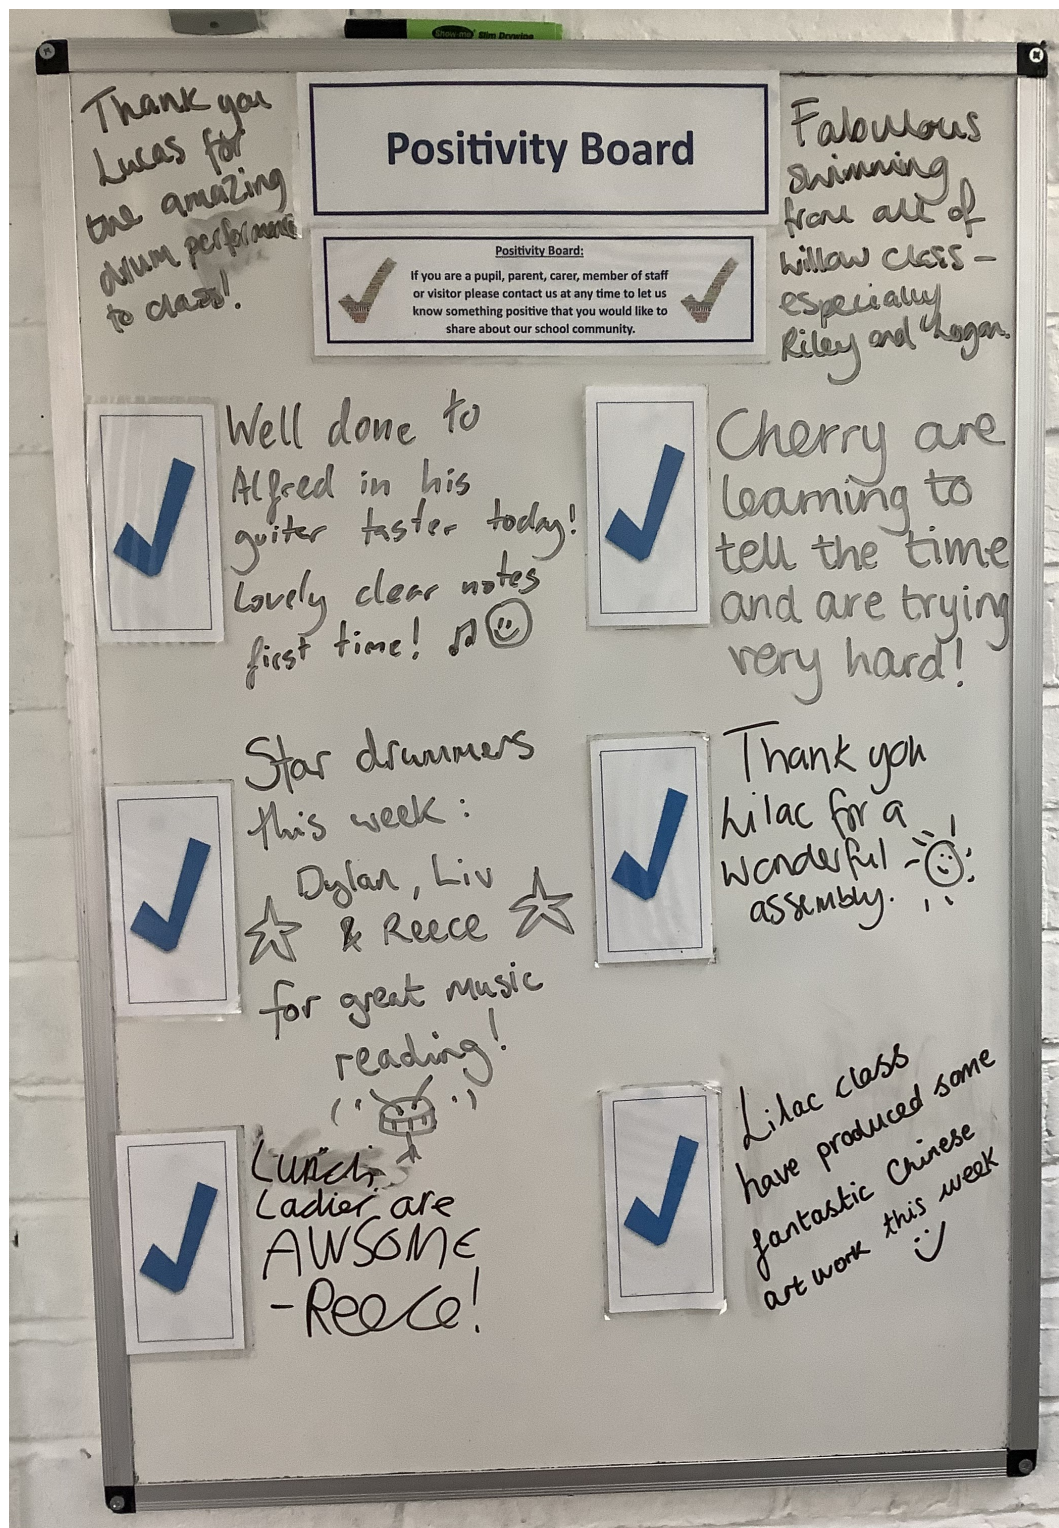 Show-me Slim Drywipe
Positivity Board
Positivity Board:
If you are a pupil, parent, carer, member of staff
or visitor please contact us at any time to let us
know something positive that you would like to
share about our school community.
Thank you
Lucas for
the amazing
drum performance
to class!
Fabulous
swimming
from all of
Willow class –
especially
Riley and Logan.
Well done to
Alfred in his
guiter taster today!
Lovely clear notes
first time!
Cherry are
learning to
tell the time
and are trying
very hard!
Star drummers
this week:
Dylan, Liv
& Reece
for great music
reading!
Thank you
Lilac for a
wonderful
assembly.
Lunch
Ladies are
AWSOME
- Reece!
Lilac class
have produced some
fantastic Chinese
art work this week